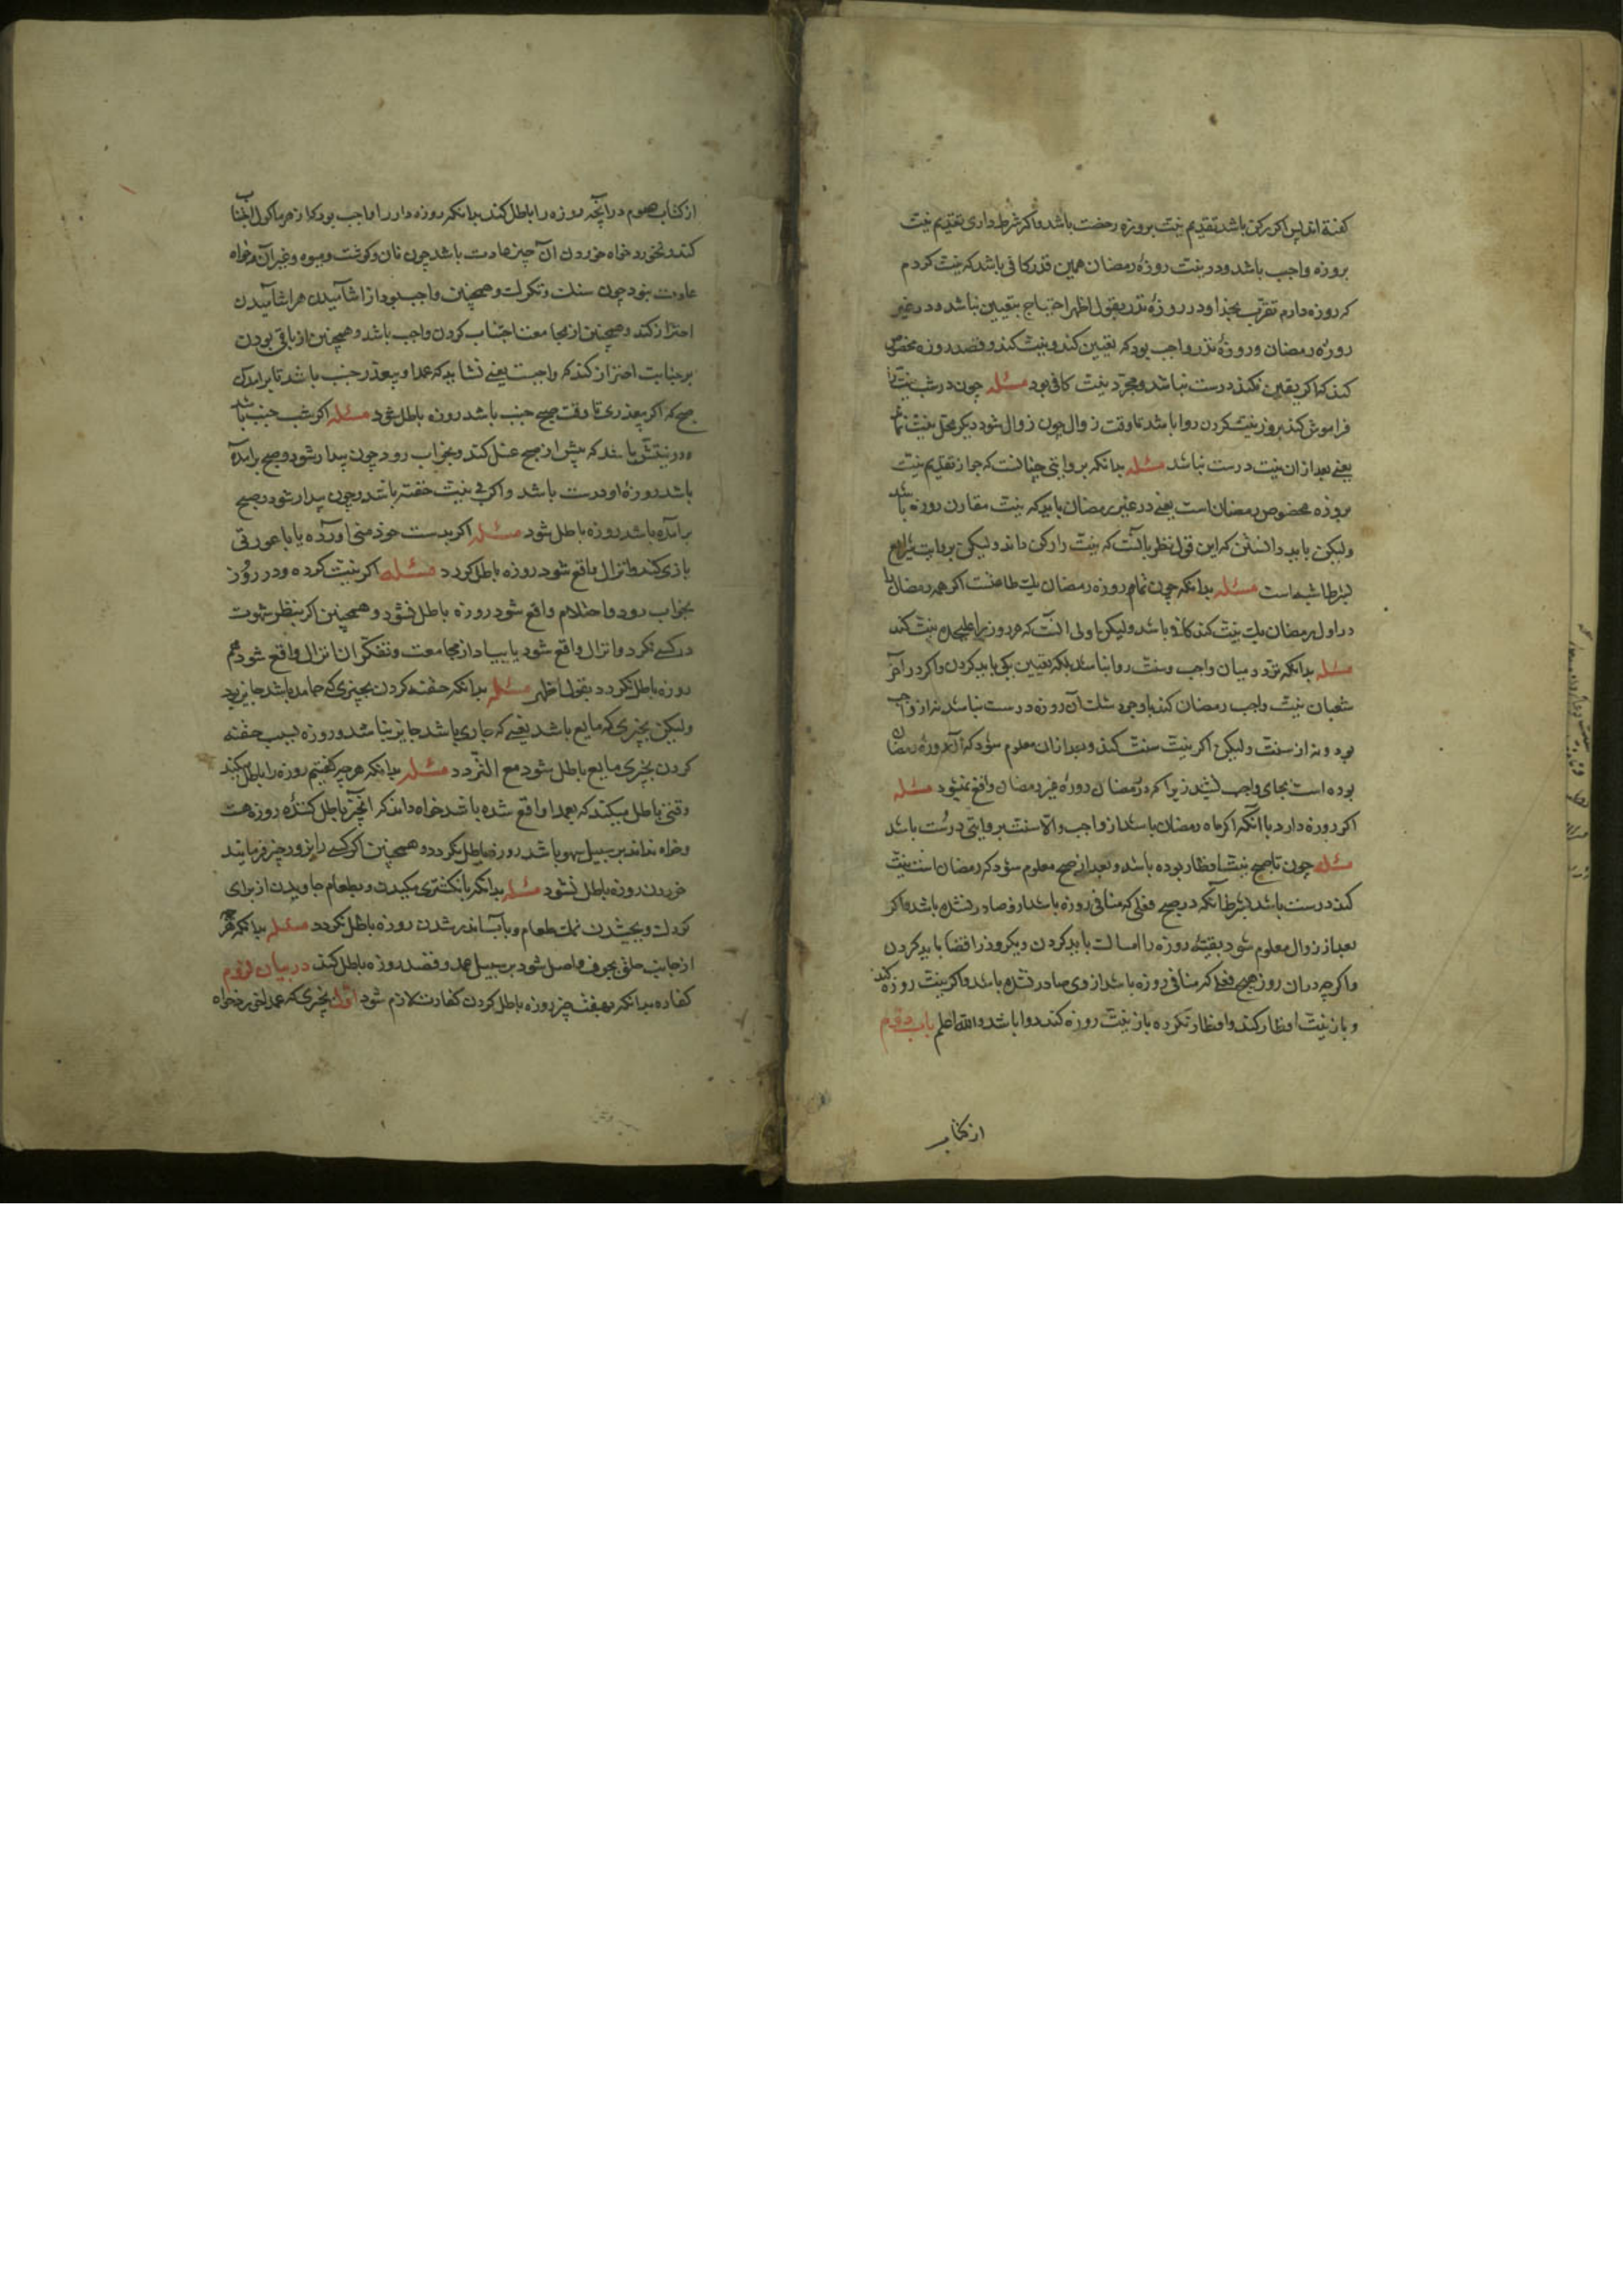 کفته‌اند پس اکر رکن باشد تقدیم نیت بروزه رخصت باشد و اکر شرط داری تقدیم نیت
بروزه واجب باشد و در نیت روزهٔ رمضان همین قدر کافی باشد که نیت کردم
که روزه دارم تقرب بخدا و در روزهٔ نذر بقول اظهر احتیاج بتعیین نباشد و در غیر
روزهٔ رمضان و روزهٔ نذر واجب بود که تعیین کند و نیت کند و قصد روزه مخصوص
کند که اکر تعیین نکند درست نباشد و مجرد نیت کافی بود مسئله چون در شب نیت را
فراموش کند بروز نیت کردن روا باشد تا وقت زوال چون زوال شود دیکر محل نیت نماند
یعنی بعد از ان نیت درست نباشد مسئله بدانکه بروایتی چنانست که جواز تقدیم نیت
بروزه مخصوص رمضان است یعنی در غیر رمضان باید که نیت مقارن روزه باشد
ولیکن باید دانستن که این قول نظر بآنست که نیت را رکن داند ولیکن بروایت
شرط اشبه است مسئله بدانکه چون تمام روزه رمضان یک طاعتست اکر همه رمضان را
در اول رمضان یک نیت کند کافی باشد ولیکن اولی آنست که هر روز را علیحده نیت کند
مسئله بدانکه تردد میان واجب و سنت روا نباشد بلکه تعیین یکی باید کردن و اکر در آخر
شعبان نیت واجب رمضان کند با وجود شک آن روزه درست نباشد نه از واجب
بود و نه از سنت ولیکن اکر نیت سنت کند و بعد از ان معلوم شود که آن روزهٔ رمضان
بوده است بجای واجب نشیند زیرا که در رمضان روزهٔ غیر رمضان واقع نمیشود مسئله
اکر روزه دارد با آنکه اکر ماه رمضان باشد از واجب والا سنت بروایتی درست باشد
مسئله چون تا صبح نیت افطار بوده باشد و بعد از صبح معلوم شود که رمضان است نیت
کند درست باشد بشرط آنکه در صبح فعلی که منافی روزه باشد ازو صادر نشده باشد و اکر
بعد از زوال معلوم شود بقیهٔ روزه را امساک باید کردن و دیکر روز را قضا باید کردن
و اکر چه در ان روز هیچ فعلی که منافی روزه باشد از وی صادر نشده باشد و اکر نیت روزه کند
و باز نیت افطار کند و افطار نکرده باز نیت روزه کند روا باشد والله اعلم باب دوم
از کتاب
از کتاب صوم در آنچه روزه را باطل کند بدانکه روزه دار را واجب بود که از هر ماکول اجتناب
کند و نخورد خواه خوردن آن چیز عادت باشد چون نان و کوشت و میوه و غیر آن و خواه
عادت نبود چون سنک و تکرک و همچنین واجب بود از آشامیدن هر آشامیدن
احتراز کند و همچنین از مجامعت اجتناب کردن واجب باشد و همچنین از باقی بودن
بر جنابت احتراز کند که واجبست یعنی نشاید که عمدا و بیعذر جنب باشد تا برآمدن
صبح که اکر بیعذری تا وقت صبح جنب باشد روزه باطل شود مسئله اکر شب جنب باشد
و در نیتش باشد که پیش از صبح غسل کند و بخواب رود چون بیدار شود و صبح برآمده
باشد روزهٔ او درست باشد و اکر بی نیت خفته باشد و چون بیدار شود صبح
برآمده باشد روزه باطل شود مسئله اکر بدست خود منی آورده یا با عورتی
بازی کند و انزال واقع شود روزه باطل کردد مسئله اکر نیت کرده و در روز
بخواب رود و احتلام واقع شود روزه باطل نشود و همچنین اکر بنظر شهوت
در کسی نکرد و انزال واقع شود یا بیاد از مجامعت و تفکر ان انزال واقع شود هم
روزه باطل نکردد بقول اظهر مسئله بدانکه حقنه کردن بچیزی که جامد باشد جایز بود
ولیکن بچیزی که مایع باشد یعنی که جاری باشد جایز نباشد و روزه بسبب حقنه
کردن بچیزی مایع باطل شود مع التردد مسئله بدانکه هر چیز کفتیم روزه را باطل میکند
وقتی باطل میکند که بعمدا واقع شده باشد خواه داند که آنچیز باطل کنندهٔ روزه هست
و خواه نداند بر سبیل سهو باشد روزه باطل نکردد و همچنین اکر کسی را بزور چیز فرمایند
خوردن روزه باطل نشود مسئله بدانکه بانکشتری مکیدن و بطعام جاویدن از برای
کودک و بچشیدن نمک طعام و بآب اندر شدن روزه باطل نکردد مسئله بدانکه هر
از جانب حلق بجوف واصل شود بر سبیل عمد و قصد روزه باطل کند در بیان لزوم
کفاره بدانکه بهفت چیز روزه باطل کردن کفارت لازم شود اول بچیزی که عمدا خورد خواه